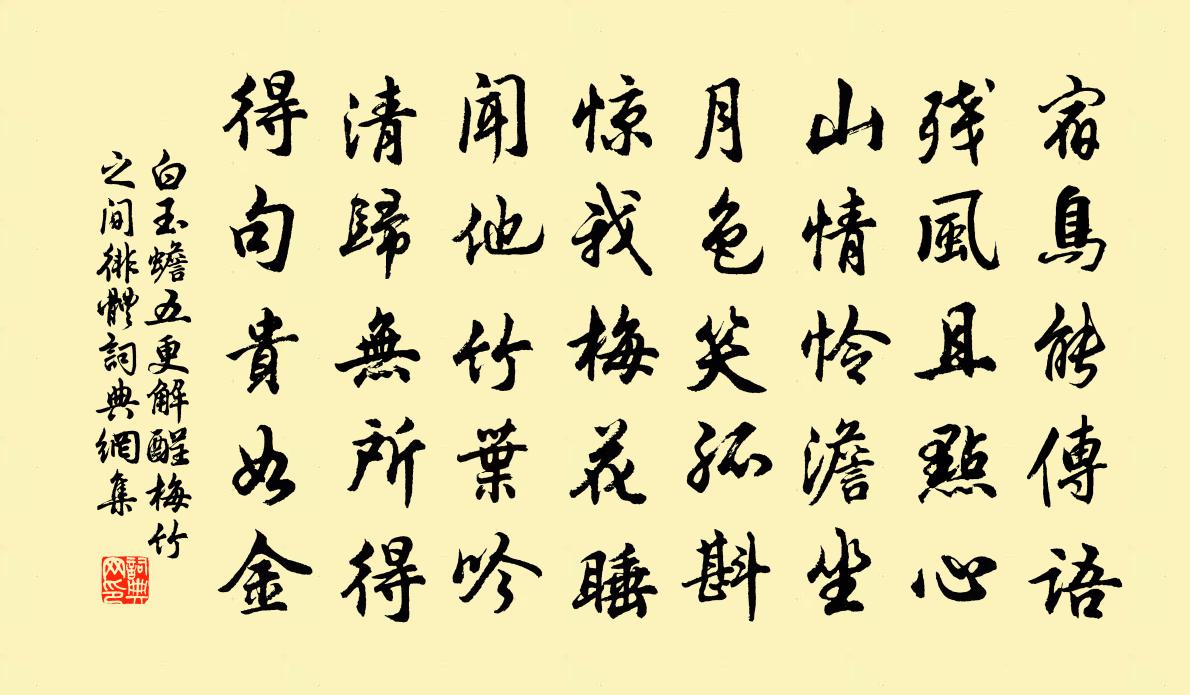 宿鳥能傳語
残風且點心
山情怜澹坐
月色笑孤斟
惊我梅花睡
聞他竹葉吟
清歸無所得
得句貴如金
白玉蟾五更解酲梅竹
之间徘體詞典網集
詞典網印